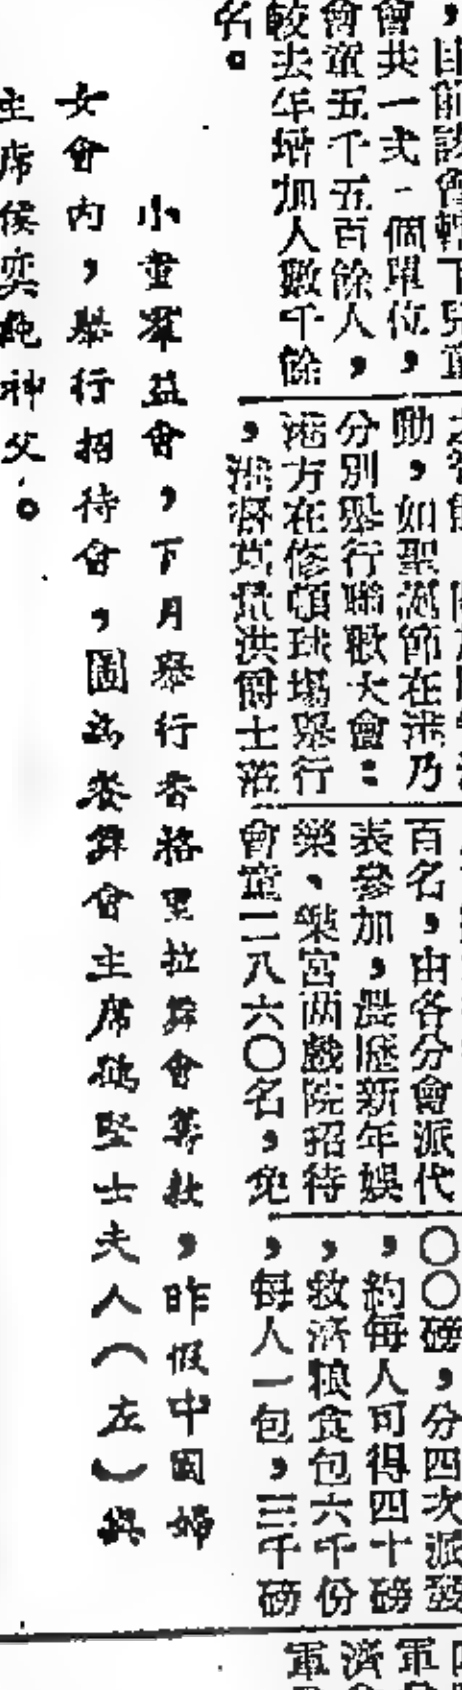 會共一弍一個單位，
會童五千五百餘人，
較去年增加人數千餘
名。
動，如聖誕節在港乃
分別舉行聯歡大會：
港方在修頓球場舉行
，港督葛量洪爵士蒞
百名，由各分會派代
表參加，農歷新年娛
樂、樂宮两戲院招待
會童二八六〇名，免
〇〇磅，分四次派發
，約每人可得四十磅
，救濟粮食包六千份
，每人一包，三千磅
小童羣益會，下月舉行香格里拉舞會籌款，昨假中國婦
女會內，舉行招待會，圖為餐舞會主席 堅士夫人（左）與
主席侯奕純神父。